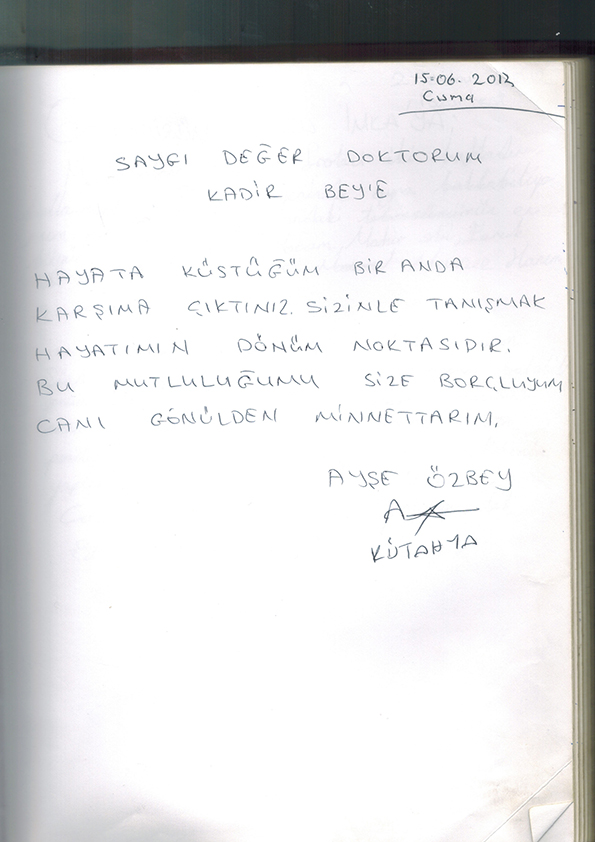 15.06.2012
Cuma
SAYGI DEĞER DOKTORUM
KADİR BEY'E
HAYATA KÜSTÜĞÜM BİR ANDA
KARŞIMA ÇIKTINIZ. SİZİNLE TANIŞMAK
HAYATIMIN DÖNÜM NOKTASIDIR.
BU MUTLULUĞUMU SİZE BORÇLUYUM
CANI GÖNÜLDEN MİNNETTARIM.
AYŞE ÖZBEY
KÜTAHYA